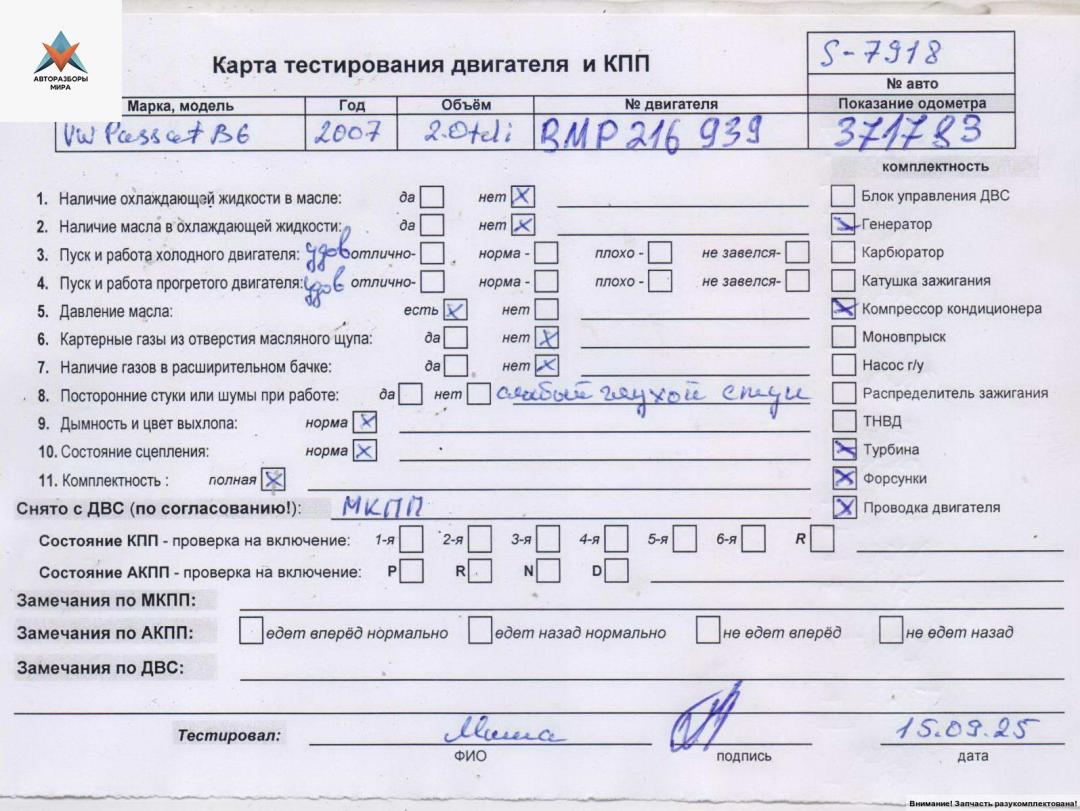 АВТОРАЗБОРЫ
МИРА
Карта тестирования двигателя и КПП
S-7918
№ авто
Марка, модель Год Объём № двигателя Показание одометра
VW Passat B6 2007 2.0tdi BMP 216 939 371783
комплектность
1. Наличие охлаждающей жидкости в масле: да нет Блок управления ДВС
2. Наличие масла в охлаждающей жидкости: да нет Генератор
3. Пуск и работа холодного двигателя: удов отлично- норма - плохо - не завелся- Карбюратор
4. Пуск и работа прогретого двигателя: удов отлично- норма - плохо - не завелся- Катушка зажигания
5. Давление масла: есть нет Компрессор кондиционера
6. Картерные газы из отверстия масляного щупа: да нет Моновпрыск
7. Наличие газов в расширительном бачке: да нет Насос г/у
8. Посторонние стуки или шумы при работе: да нет слабый глухой стук Распределитель зажигания
9. Дымность и цвет выхлопа: норма ТНВД
10. Состояние сцепления: норма Турбина
11. Комплектность : полная Форсунки
Снято с ДВС (по согласованию!): МКПП Проводка двигателя
Состояние КПП - проверка на включение: 1-я 2-я 3-я 4-я 5-я 6-я R
Состояние АКПП - проверка на включение: P R N D
Замечания по МКПП:
Замечания по АКПП: едет вперёд нормально едет назад нормально не едет вперёд не едет назад
Замечания по ДВС:
Тестировал: Миша 15.09.25
ФИО подпись дата
Внимание! Запчасть разукомплектована!